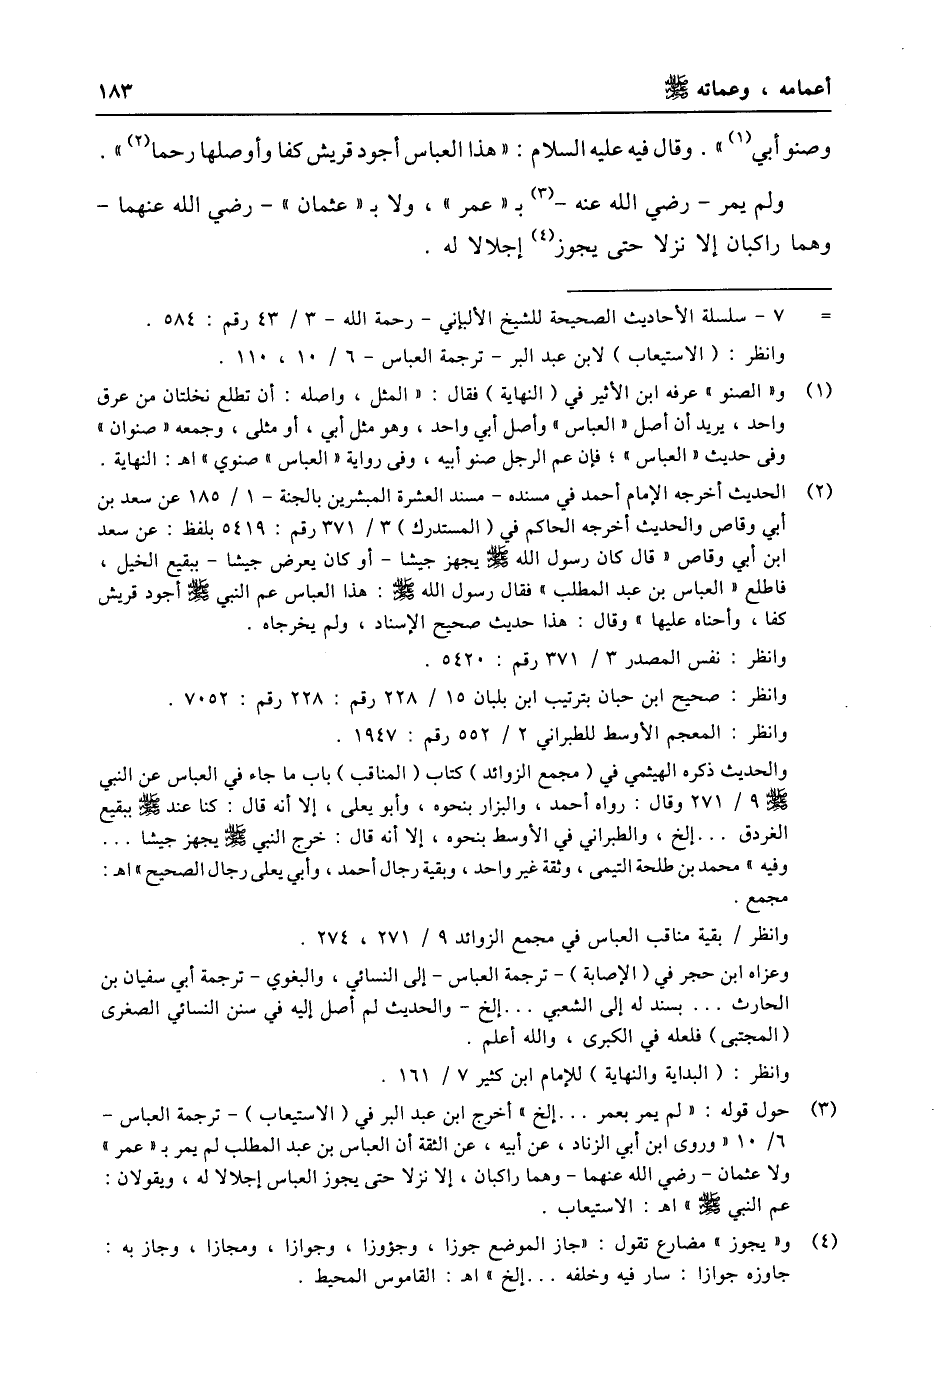 أعمامه ، وعماته ﷺ ١٨٣
وصنو أبي(١) » . وقال فيه عليه السلام : « هذا العباس أجود قريش كفا وأوصلها رحما(٢) » .
ولم يمر – رضي الله عنه –(٣) بـ « عمر » ، ولا بـ « عثمان » – رضي الله عنهما –
وهما راكبان إلا نزلا حتى يجوز(٤) إجلالا له .
= ٧ – سلسلة الأحاديث الصحيحة للشيخ الألباني – رحمة الله – ٣ / ٤٣ رقم : ٥٨٤ .
وانظر : ( الاستيعاب ) لابن عبد البر – ترجمة العباس – ٦ / ١٠ ، ١١٠ .
(١) و« الصنو » عرفه ابن الأثير في ( النهاية ) فقال : « المثل ، واصله : أن تطلع نخلتان من عرق
واحد ، يريد أن أصل « العباس » وأصل أبي واحد ، وهو مثل أبي ، أو مثلى ، وجمعه « صنوان »
وفى حديث « العباس » ؛ فإن عم الرجل صنو أبيه ، وفى رواية « العباس » صنوي » اهـ : النهاية .
(٢) الحديث أخرجه الإمام أحمد في مسنده – مسند العشرة المبشرين بالجنة – ١ / ١٨٥ عن سعد بن
أبي وقاص والحديث أخرجه الحاكم في ( المستدرك ) ٣ / ٣٧١ رقم : ٥٤١٩ بلفظ : عن سعد
ابن أبي وقاص « قال كان رسول الله ﷺ يجهز جيشا – أو كان يعرض جيشا – ببقيع الخيل ،
فاطلع « العباس بن عبد المطلب » فقال رسول الله ﷺ : هذا العباس عم النبي ﷺ أجود قريش
كفا ، وأحناه عليها » وقال : هذا حديث صحيح الإسناد ، ولم يخرجاه .
وانظر : نفس المصدر ٣ / ٣٧١ رقم : ٥٤٢٠ .
وانظر : صحيح ابن حبان بترتيب ابن بلبان ١٥ / ٢٢٨ رقم : ٢٢٨ رقم : ٧٠٥٢ .
وانظر : المعجم الأوسط للطبراني ٢ / ٥٥٢ رقم : ١٩٤٧ .
والحديث ذكره الهيثمي في ( مجمع الزوائد ) كتاب ( المناقب ) باب ما جاء في العباس عن النبي
ﷺ ٩ / ٢٧١ وقال : رواه أحمد ، والبزار بنحوه ، وأبو يعلى ، إلا أنه قال : كنا عند ﷺ ببقيع
الغردق ...إلخ ، والطبراني في الأوسط بنحوه ، إلا أنه قال : خرج النبي ﷺ يجهز جيشا ...
وفيه » محمد بن طلحة التيمى ، وثقة غير واحد ، وبقية رجال أحمد ، وأبي يعلى رجال الصحيح » اهـ :
مجمع .
وانظر / بقية مناقب العباس في مجمع الزوائد ٩ / ٢٧١ ، ٢٧٤ .
وعزاه ابن حجر في ( الإصابة ) – ترجمة العباس – إلى النسائي ، والبغوي – ترجمة أبي سفيان بن
الحارث ... بسند له إلى الشعبي ...إلخ – والحديث لم أصل إليه في سنن النسائي الصغرى
( المجتبى ) فلعله في الكبرى ، والله أعلم .
وانظر : ( البداية والنهاية ) للإمام ابن كثير ٧ / ١٦١ .
(٣) حول قوله : « لم يمر بعمر ...إلخ » أخرج ابن عبد البر في ( الاستيعاب ) – ترجمة العباس –
٦/ ١٠ « وروى ابن أبي الزناد ، عن أبيه ، عن الثقة أن العباس بن عبد المطلب لم يمر بـ « عمر »
ولا عثمان – رضي الله عنهما – وهما راكبان ، إلا نزلا حتى يجوز العباس إجلالا له ، ويقولان :
عم النبي ﷺ » اهـ : الاستيعاب .
(٤) و« يجوز » مضارع تقول : «جاز الموضع جوزا ، وجؤوزا ، وجوازا ، ومجازا ، وجاز به :
جاوزه جوازا : سار فيه وخلفه ...إلخ » اهـ : القاموس المحيط .